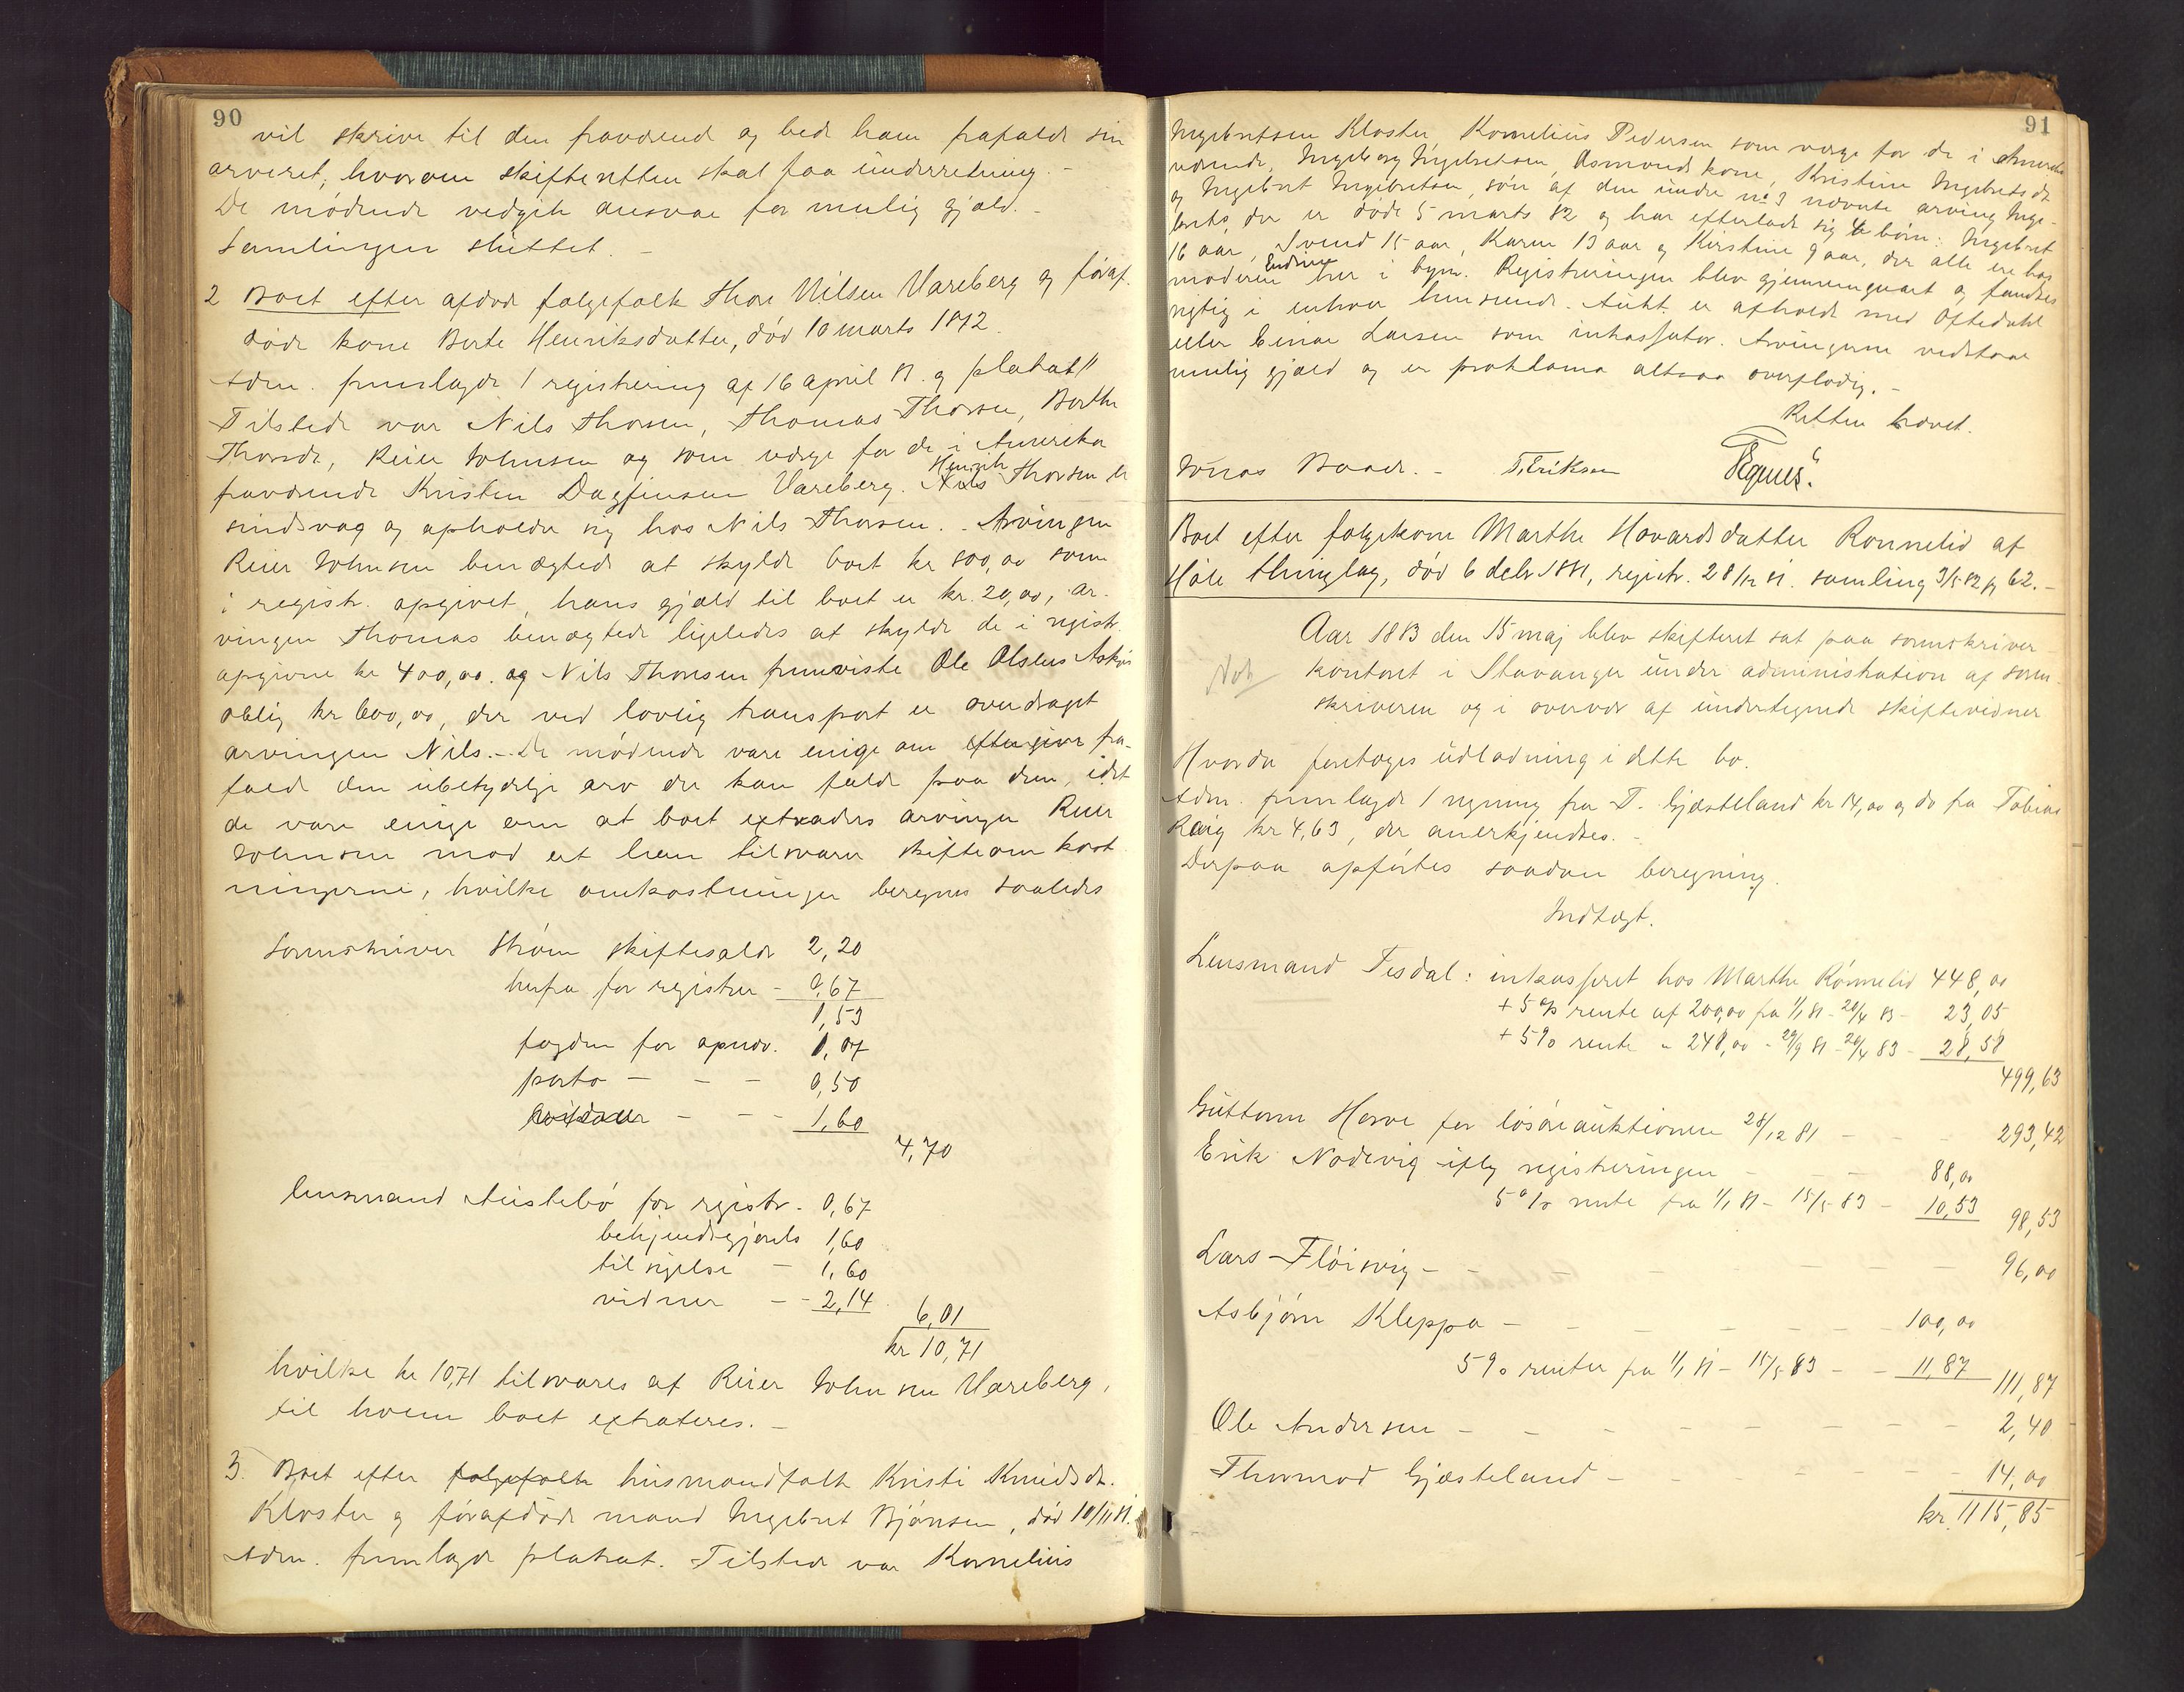 90
vil skrive til den fraværend og bede ham frafalde sin
arveret, hvorom skifteretten skal faa underretning. -
De mødende vedgik ansvar for mulig gjæld. -
Samlingen sluttet. -
2 Boet efter afdøde følgefolk Thore Nilsen Vareberg og foraf.
døde kone Berte Henriksdatter, død 10 marts 1872.
Adm. fremlagde 1 registrering af 16 april 81. og plakat
Tilstede var Nils Thorsen, Thomas Thorsen, Berthe
Thorsdt, Reier Johnsen og som værge for de i Amerika
fraværende Kristen Dagfinsen Vareberg. Nils Henrik Thorsen er
sindsvag og opholder sig hos Nils Thorsen. - Arvingen
Reier Johnsen benægtede at skylde boet kr 800,00 som
i registr. opgivet, hans gjæld til boet er kr. 20,00, ar-
vingen Thomas benægtede ligeledes at skylde de i registr.
opgivne kr 400,00. og Nils Thorsen fremviste Ole Olsens
oblig kr 600,00, der ved lovlig transport er overdraget
arvingen Nils. - De mødende vare enige om eftergive fra-
falde den ubetydelige arv der kan falde paa dem, idet
de vare enige om at boet extraderes arvingen Reier
Johnsen mod at han tilsvarer skifteomkost
ningerne, hvilke omkostninger beregnes saaledes
Sorenskriver Strøm skiftesalær 2,20
herfra for registrer - 0,67
1,53
fogden for opnæv. 1,07
porto - - - 0,50
- - - 1,60
4,70
lensmand Austebø for registr. 0,67
bekjendtgjørels 1,60
tilsigelse - 1,60
vidner - - 2,14
6,01
kr 10,71
hvilke kr 10,71 tilsvares af Reier Johnsen Vareberg,
til hvem boet extraderes. -
3. Boet efter følgefolk husmandfolk Kristi Knudsdt.
Kloster og forafdøde mand Ingebret Bjørnsen, død 10/11 81.
Adm. fremlagde plakat. Tilstede var Kornelius
91
Ingebretsen Kloster, Kornelius Pedersen som værge for de i Amerika
værende, Ingeborg Ingebretsen, Asmunds kone, Kristine Ingebretsdt
og Ingebret Ingebretsen, søn af den under no 3 nævnte arving Inge-
bret, der er døde 5 marts 82 og har efterladt sig 4 børn: Ingebret
16 aar, Svend 15 aar, Karen 13 aar og Kirstine 9 aar, der alle ere hos
moderen Endine her i byen. Registreringen blev gjennemgaaet og fandtes
rigtig i enhver henseende. Aukt. er afholdt med Oftedahl
eller Einar Larsen som inkassator. Arvingerne vedstaar
mulig gjæld og er proklama altsaa overflødig. -
Retten hævet.
Jonas Baade. - T. Eriksen
Boet efter følgekone Marthe Havardsdatter Rønnelid af
Høle thinglag, død 6 decbr 1881, registr. 28/12 81. samling 3/5 82 pg 62. -
Not
Aar 1883 den 15 maj blev skifteret sat paa sorenskriver
kontoret i Stavanger under administration af soren-
skriveren og i overvær af undertegnede skiftevidner
Hvorda foretoges udlodning i dette bo.
Adm. fremlagde 1 regning fra T. Gjæsteland kr 14,00 og do fra Tobias
kr 4,63, der anerkjendtes. -
Derpaa opførtes saadan beregning.
Indtægt.
Lensmand Tesdal: inkasseret hos Marthe Rønnelid 448,00
+ 5% rente af 200,00 fra 1/1 81 - 20/4 83 - 23,05
+ 5% rente " 248,00 - 29/9 81 - 20/4 83 - 28,58
499,63
Guttorm Horve for løsøreauktionen 28/12 81 - - - 293,42
Erik Nodevig iflg registreringen - - - 88,00
5% rente fra 1/1 81 - 15/5 83 - 10,53 98,53
Lars Fløisvig - - - - - - - 96,00
Asbjørn Kleppa - - - - - - - 100,00
5% renter fra 1/1 81 - 15/5 83 - - 11,87 111,87
Ole Andersen - - - - - - - 2,40
Thormod Gjæsteland - - - - - - 14,00
kr. 1115,85